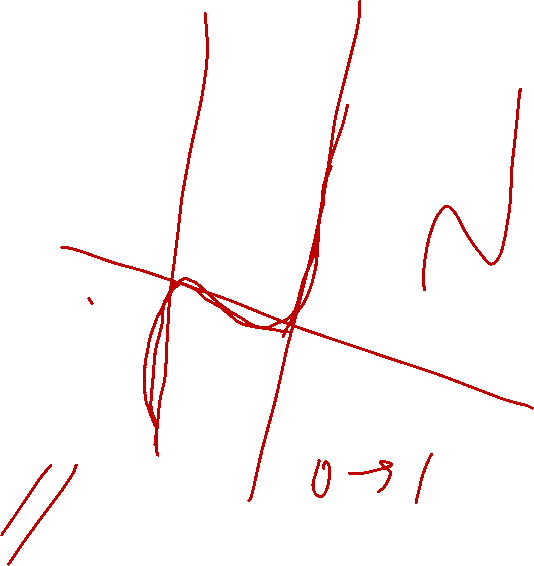 0 → 1